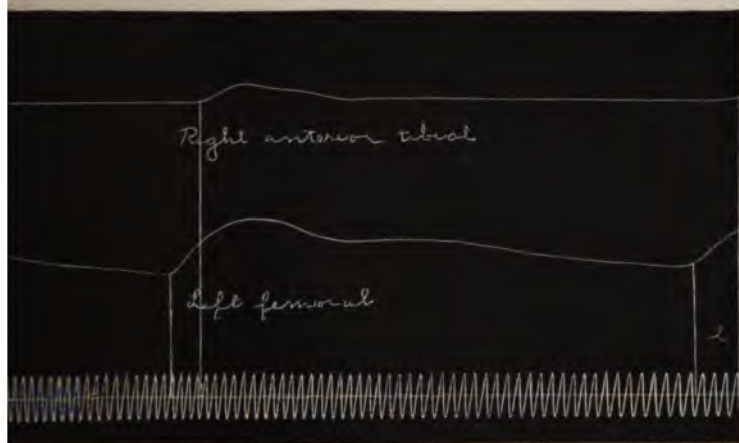 Right anterior tibial
Left femoral